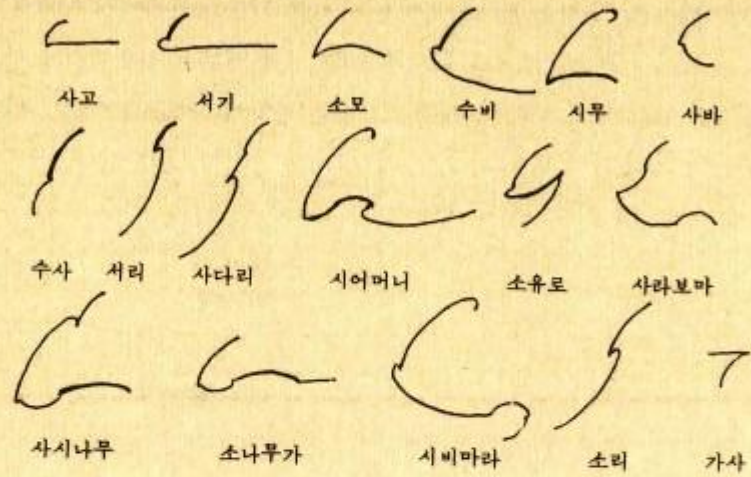 사고 서기 소모 수비 시무 사바
수사 서리 사다리 시어머니 소유로 사라보마
사시나무 소나무가 시비마라 소리 가사